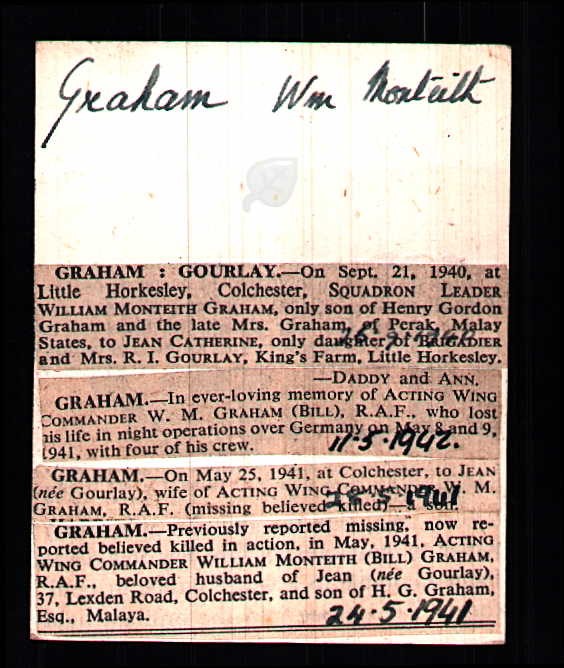 Graham Wm Monteith
GRAHAM : GOURLAY.—On Sept. 21, 1940, at
Little Horkesley, Colchester, SQUADRON LEADER
WILLIAM MONTEITH GRAHAM, only son of Henry Gordon
Graham and the late Mrs. Graham, of Perak, Malay
States, to JEAN CATHERINE, only daughter of
and Mrs. R. I. GOURLAY, King's Farm, Little Horkesley.
—DADDY and ANN.
GRAHAM.—In ever-loving memory of ACTING WING
COMMANDER W. M. GRAHAM (BILL), R.A.F., who lost
his life in night operations over Germany on May 8 and 9,
1941, with four of his crew.
11-5-1942.
GRAHAM.—On May 25, 1941, at Colchester, to JEAN
(née Gourlay), wife of ACTING WING COMMANDER W. M.
GRAHAM, R.A.F. (missing believed killed)—a son.
GRAHAM.—Previously reported missing, now re-
ported believed killed in action, in May, 1941, ACTING
WING COMMANDER WILLIAM MONTEITH (BILL) GRAHAM,
R.A.F., beloved husband of Jean (née Gourlay),
37, Lexden Road, Colchester, and son of H. G. Graham,
Esq., Malaya.
24-5-1941